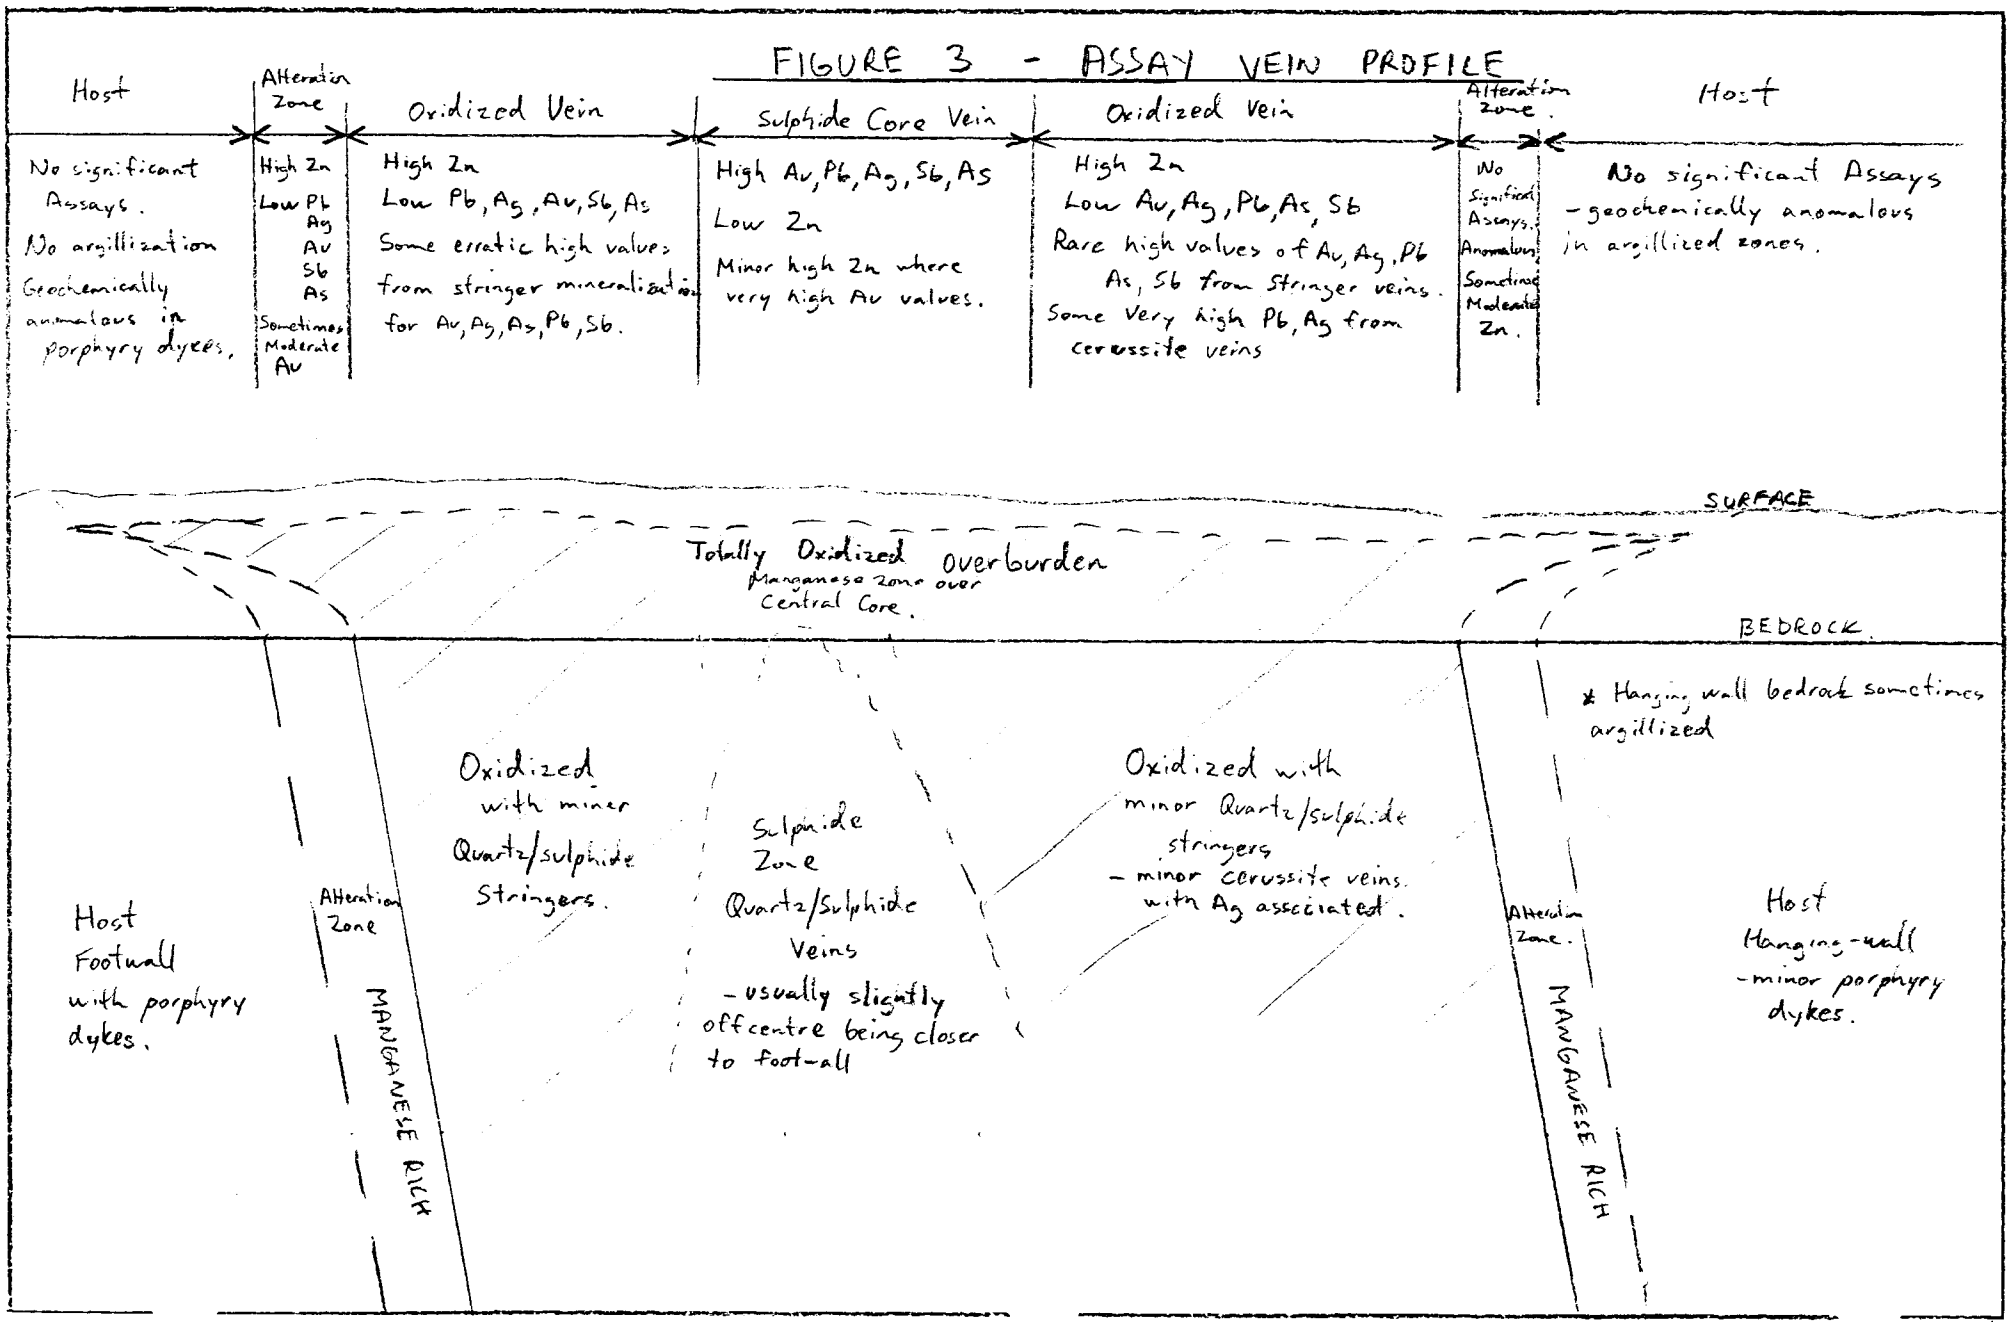 FIGURE 3 - ASSAY VEIN PROFILE
Host
Alteration
Zone
Oxidized Vein
Sulphide Core Vein
Oxidized Vein
Alteration
Zone.
Host
No significant
Assays.
No argillization
Geochemically
anomalous in
porphyry dykes,
High Zn
Low Pb
Ag
Au
Sb
As
Sometimes
Moderate
Au
High Zn
Low Pb, Ag, Au, Sb, As
Some erratic high values
from stringer mineralization
for Au, Ag, As, Pb, Sb.
High Au, Pb, Ag, Sb, As
Low Zn
Minor high Zn where
very high Au values.
High Zn
Low Au, Ag, Pb, As, Sb
Rare high values of Au, Ag, Pb
As, Sb from Stringer veins.
Some Very high Pb, Ag from
cerussite veins
No
Significant
Assays.
Anomalous
Sometimes
Moderate
Zn.
No significant Assays
- geochemically anomalous
in argillized zones.
SURFACE
Totally Oxidized Overburden
Manganese zone over
Central Core.
BEDROCK.
* Hanging wall bedrock sometimes
argillized
Oxidized
with miner
Quartz/sulphide
Stringers.
Sulphide
Zone
Quartz/Sulphide
Veins
- usually slightly
offcentre being closer
to foot-all
Oxidized with
minor Quartz/sulphide
stringers
- minor cerussite veins.
with Ag associated.
Host
Footwall
with porphyry
dykes.
Alteration
Zone
MANGANESE RICH
Alteration
Zone.
MANGANESE RICH
Host
Hanging-wall
- minor porphyry
dykes.